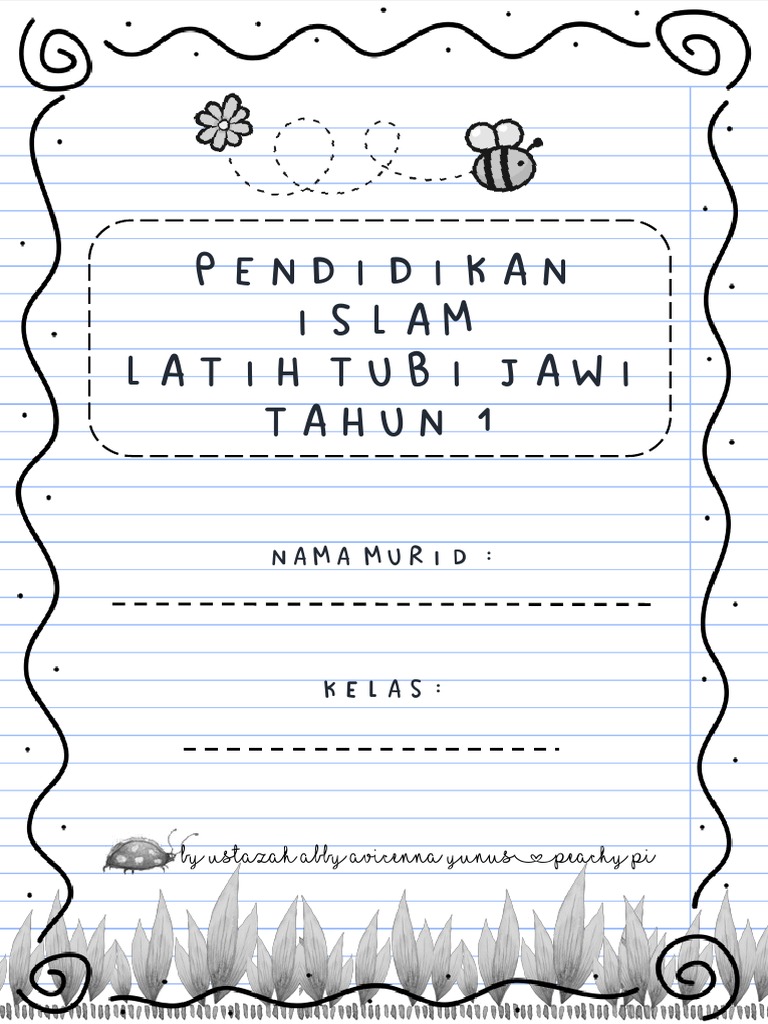 PENDIDIKAN
ISLAM
LATIH TUBI JAWI
TAHUN 1
NAMA MURID :
KELAS :
by ustazah abby avicenna yunus peachy pi